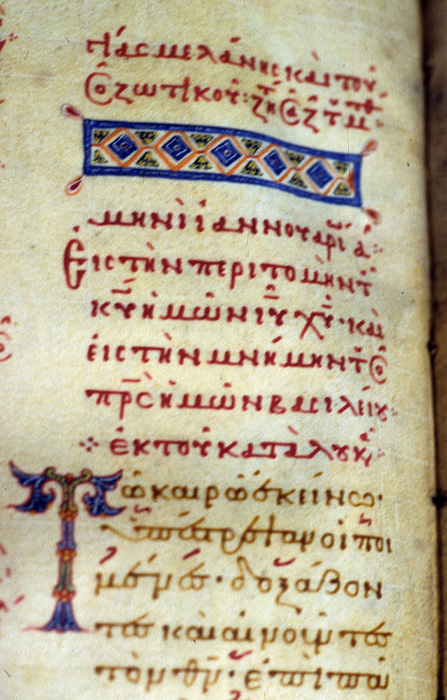 μελάνης καὶ τοῦ
ὁ ζωτικοῦ:
μηνὶ ἰαννουαρί α:
Εἰς τὴν περιτομὴν τ
κ̅υ̅ ἡμῶν ι̅υ̅ χ̅υ̅· καὶ
εἰς τὴν μνήμην τ ὁ
π̅ρ̅ς̅ ἡμῶν βασιλείου
ἐκ τοῦ κατὰ λουκ
Τῶ καιρῶ ἐκείνω·
ὑπέστρεψαν οἱ ποι
μένες· δοξάζον
τες καὶ αἰνοῦντες
τὸν θ̅ν̅· ἐπὶ πᾶ